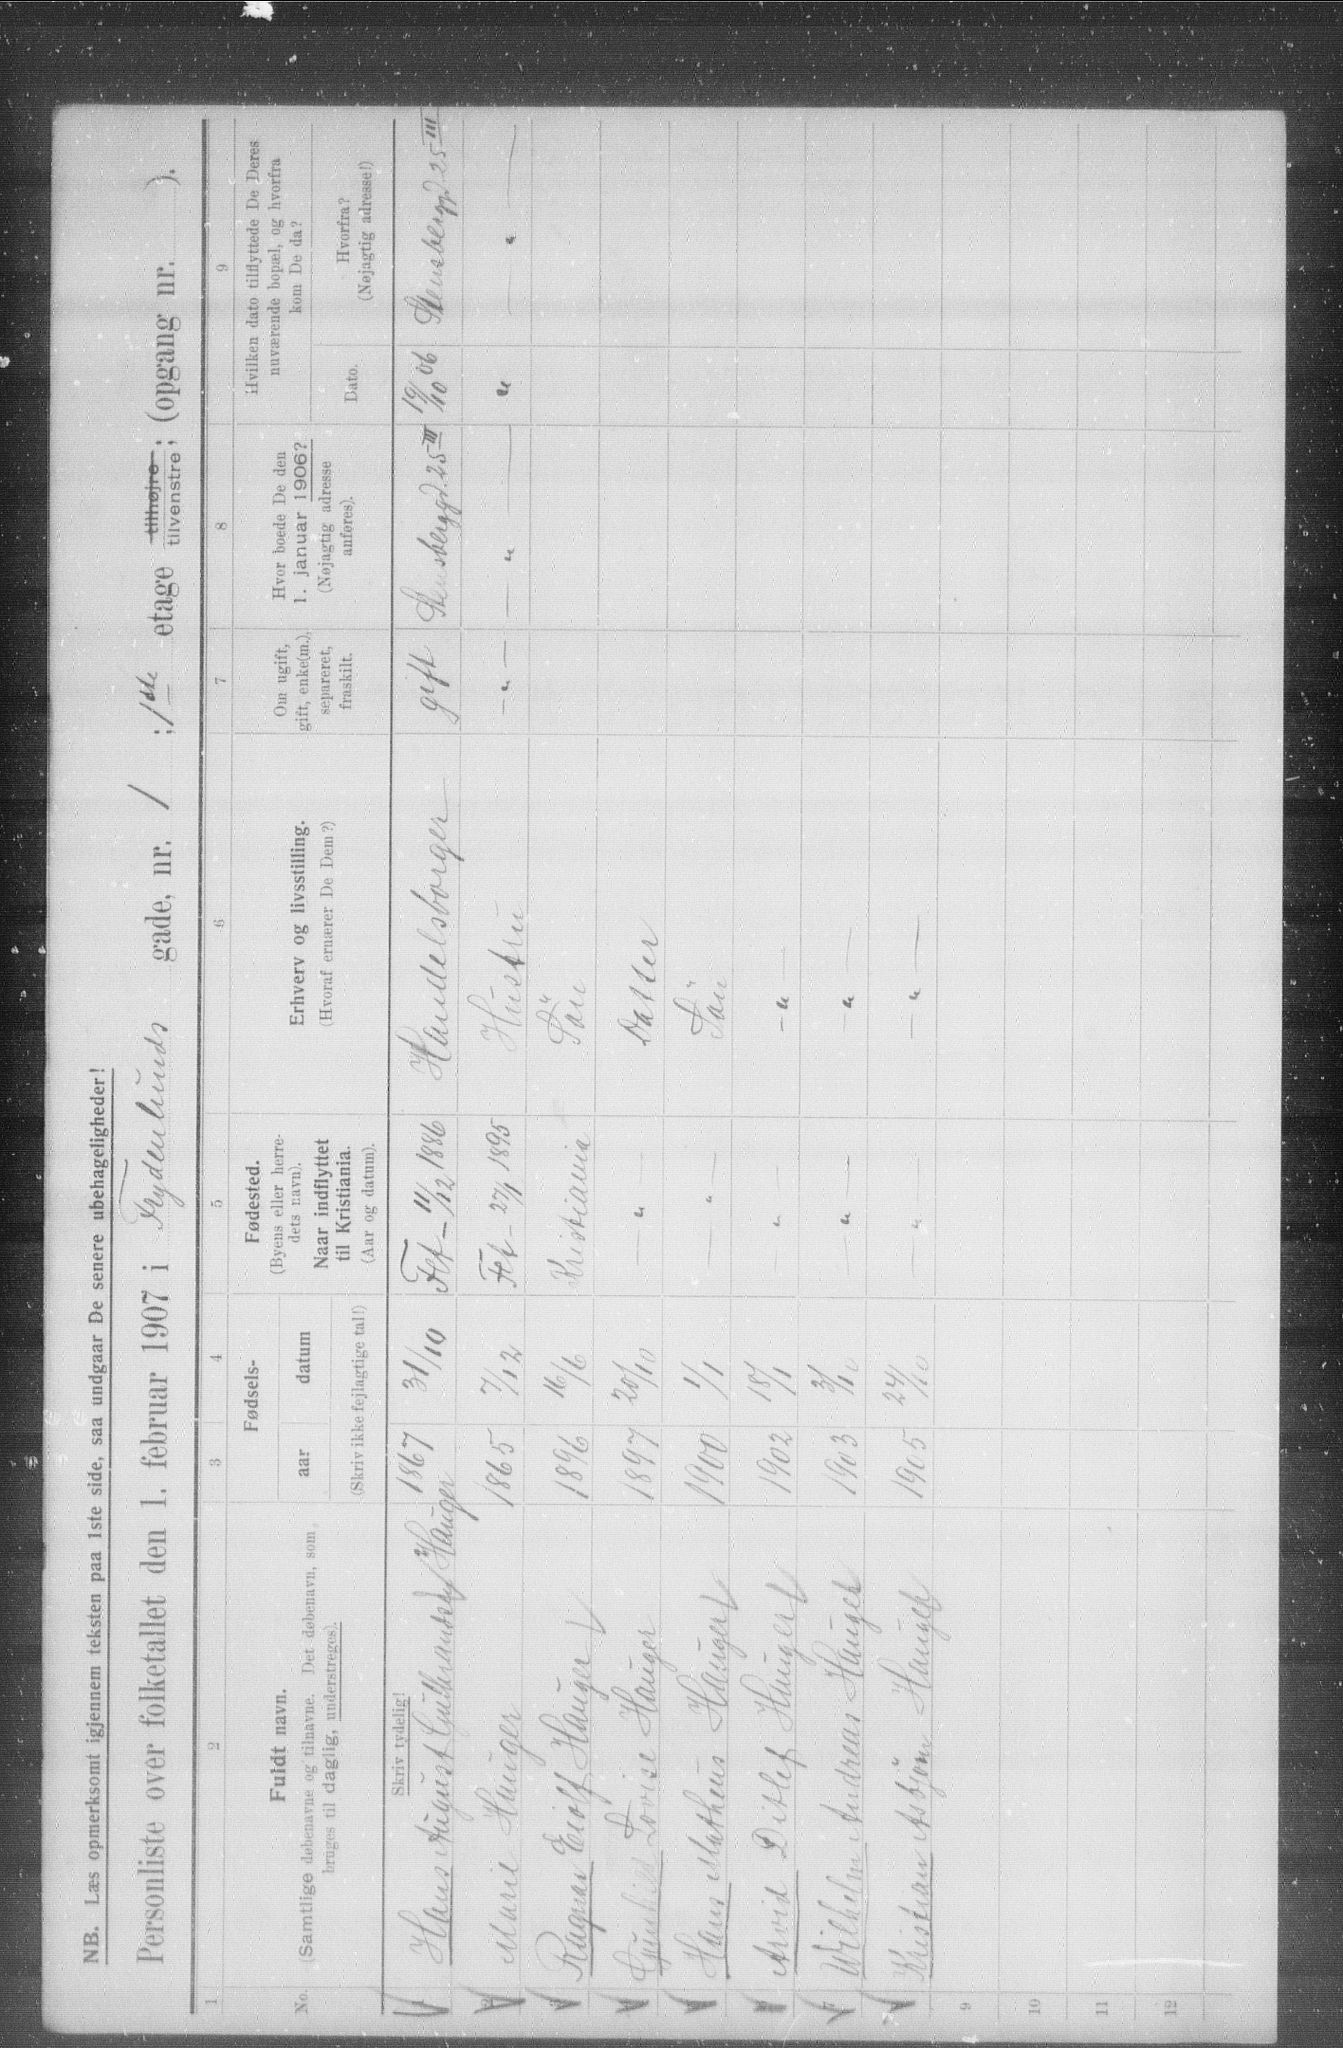 NB. Læs opmerksomt igjennem teksten paa 1ste side, saa undgaar De senere ubehageligheder!
Personliste over folketallet den 1. februar 1907 i Frydenlunds gade, nr. 1 ; 1ste etage tilhøjre tilvenstre; (opgang nr. ).
1 2 3 4 5 6 7 8 9
No.
Fuldt navn.
(Samtlige døbenavne og tilnavne. Det døbenavn, som bruges til daglig, understreges).
Skriv tydelig!
Fødsels-
aar datum
(Skriv ikke fejlagtige tal!)
Fødested.
(Byens eller herredets navn).
Naar indflyttet til Kristiania.
(Aar og datum).
Erhverv og livsstilling.
(Hvoraf ernærer De Dem?)
Om ugift, gift, enke(m.), separeret, fraskilt.
Hvor boede De den 1. januar 1906?
(Nøjagtig adresse anføres).
Hvilken dato tilflyttede De Deres nuværende bopæl, og hvorfra kom De da?
Dato.
Hvorfra?
(Nøjagtig adresse!)
Hans August Gulbrandsen Hauger 1867 31/10 Fet - 11/12 1886 Handelsborger gift Stensberggd. 25 III 19/10 06 Stensberggd 25 III
Marie Hauger 1865 7/12 Fet - 27/1 1895 Hustru - " - - " - " - " -
Ragnar Eiolf Hauger 1896 16/6 Kristiania Sön
Gunhild Lovise Hauger 1897 20/10 - " - Datter
Hans Matheus Hauger 1900 1/1 - " - Sön
Arvid Ditlef Hauger 1902 18/1 " - " -
Wilhelm Andreas Hauger 1903 3/10 - " - - " -
Kristian Asbjörn Hauger 1905 24/10 - " - - " -
9
10
11
12